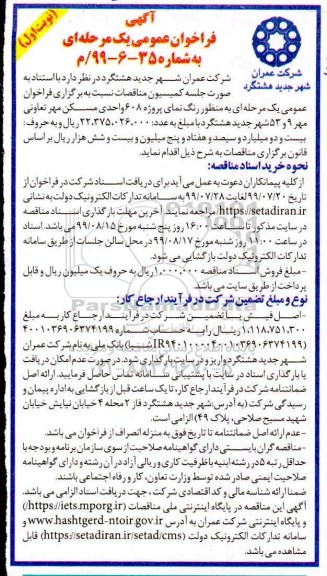 آگهی
فراخوان عمومی یک مرحله‌ای
به شماره ۳۵-۶-۹۹/م
(نوبت اول)
شرکت عمران
شهر جدید هشتگرد
شرکت عمران شهر جدید هشتگرد در نظر دارد با استناد به
صورت جلسه کمیسیون مناقصات نسبت به برگزاری فراخوان
عمومی یک مرحله‌ای به منظور رنگ نمای پروژه ۶۰۸ واحدی مسکن مهر تعاونی
مهر ۹ و ۵۳ شهر جدید هشتگرد با مبلغ به عدد: ۲۲،۳۷۵،۰۲۶،۰۰۰ ریال و به حروف:
بیست و دو میلیارد و سیصد و هفتاد و پنج میلیون و بیست و شش هزار ریال بر اساس
قانون برگزاری مناقصات به شرح ذیل اقدام نماید.
نحوه خرید اسناد مناقصه:
از کلیه پیمانکاران دعوت به عمل می‌آید برای دریافت اسناد شرکت در فراخوان از
تاریخ ۹۹/۰۷/۲۰ لغایت ۹۹/۰۷/۲۸ به سامانه تدارکات الکترونیک دولت به نشانی
https://setadiran.ir مراجعه نمایند. آخرین مهلت بارگذاری اسناد مناقصه
در سایت مذکور تا ساعت ۱۶:۰۰ روز پنج شنبه مورخ ۹۹/۰۸/۱۵ می باشد. اسناد
در ساعت ۱۱:۰۰ روز شنبه مورخ ۹۹/۰۸/۱۷ در محل سالن جلسات از طریق سامانه
تدارکات الکترونیک دولت بازگشایی می شود.
- مبلغ فروش اسناد مناقصه ۱،۰۰۰،۰۰۰ ریال به حروف یک میلیون ریال و قابل
پرداخت از طریق سایت می باشد.
نوع و مبلغ تضمین شرکت در فرآیند ارجاع کار:
- اصل فیش یا تضمین شرکت در فرآیند ارجاع کار به مبلغ
۱،۱۱۸،۷۵۱،۳۰۰ ریال را به حساب شماره ۴۰۰۱۰۳۶۹۰۶۳۷۴۱۹۹
(IR۹۴۰۱۰۰۰۰۴۰۰۱۰۳۶۹۰۶۳۷۴۱۹۹ شبا) بانک ملی به نام شرکت عمران
شهر جدید هشتگرد واریز و در سایت بارگذاری شود. در صورت عدم امکان دریافت
یا بارگذاری اسناد در سایت با پشتیبانی سامانه تماس حاصل فرمایید. ارائه اصل
ضمانتنامه شرکت در فرآیند ارجاع کار، تا یک ساعت قبل از بازگشایی به اداره پیمان و
رسیدگی شرکت (به آدرس: شهر جدید هشتگرد فاز ۲ محله ۴ خیابان نیایش خیابان
شهید مسیح صلاحی، پلاک ۴۹) الزامی است.
- عدم ارائه اصل ضمانتنامه تا تاریخ فوق به منزله انصراف از فراخوان می باشد.
- مناقصه گران بایستی دارای گواهینامه صلاحیت از سوی سازمان برنامه و بودجه با
حداقل رتبه ۵ در رشته ابنیه با ظرفیت کاری و ریالی آزاد در آن رشته و دارای گواهینامه
صلاحیت ایمنی صادر شده توسط وزارت تعاون، کار و رفاه اجتماعی باشند.
ضمنا ارائه شناسه ملی و کد اقتصادی شرکت ، جهت دریافت اسناد الزامی می باشد.
آگهی این مناقصه در پایگاه اینترنتی ملی مناقصات (https://iets.mporg.ir)
و پایگاه اینترنتی شرکت عمران به آدرس www.hashtgerd-ntoir.gov.ir و
سامانه تدارکات الکترونیک دولت (https://setadiran.ir/setad/cms) قابل
مشاهده می باشد.